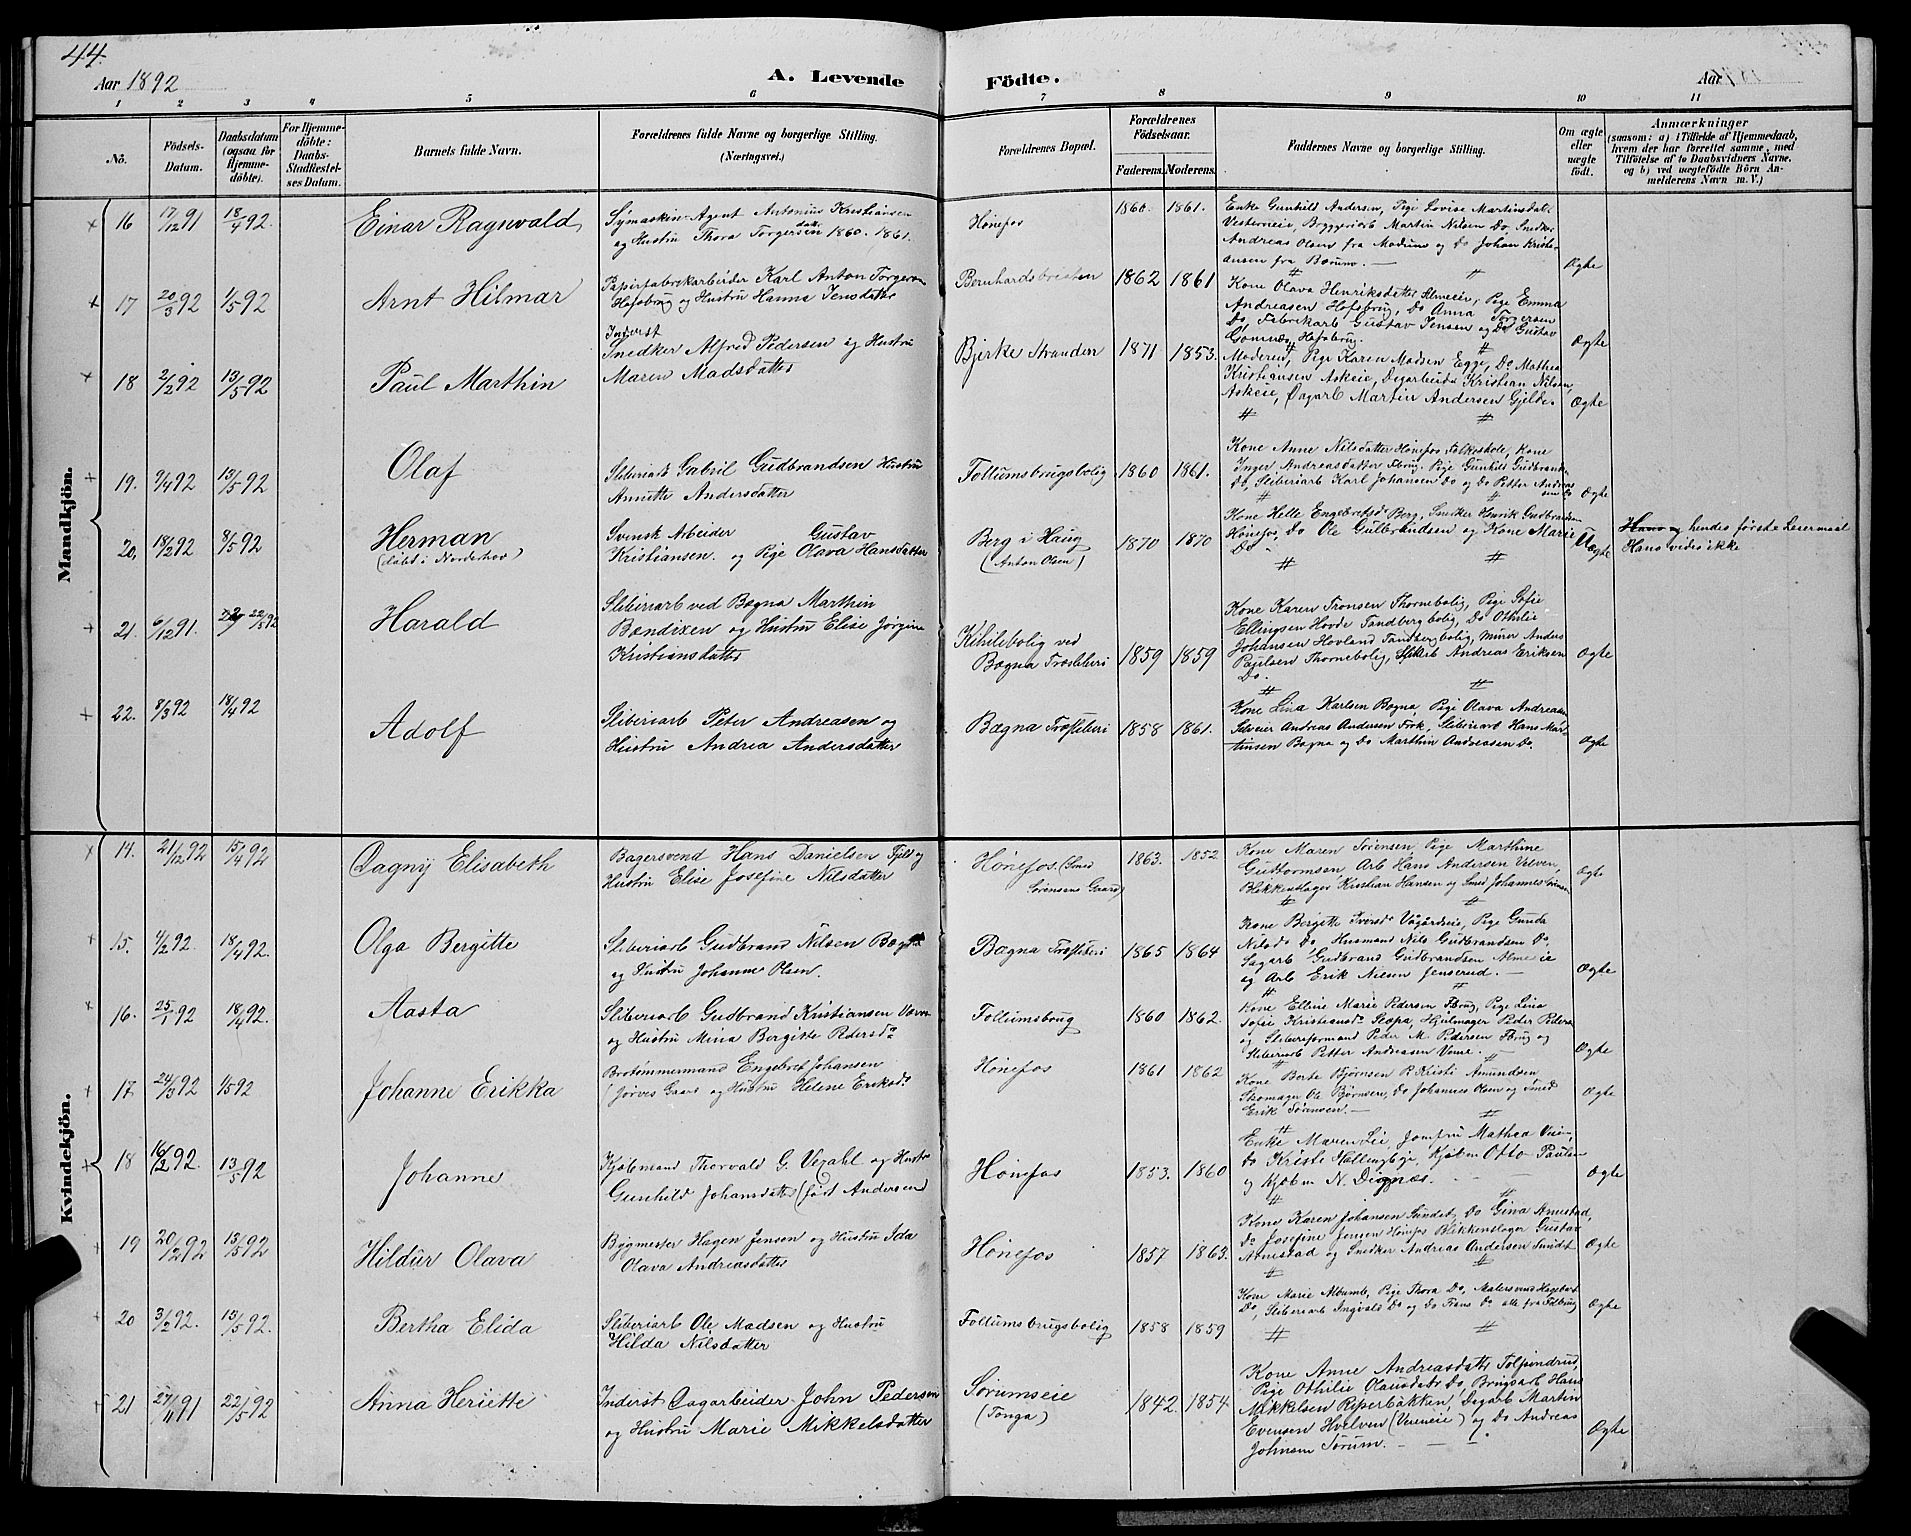 44.
Aar 1892
A. Levende
Födte.
Aar
1 2 3 4 5 6 7 8 9 10 11
No.
Födsels-Datum.
Daabsdatum (ogsaa for Hjemme-döbte).
For Hjemme-döbte: Daabs-Stadfæstel-ses Datum.
Barnets fulde Navn.
Forældrenes fulde Navne og borgerlige Stilling.
(Næringsvei.)
Forældrenes Bopæl.
Forældrenes Födselsaar.
Faderens. Moderens.
Faddernes Navne og borgerlige Stilling.
Om ægte eller uægte födt.
Anmærkninger
(saasom: a) i Tilfælde af Hjemmedaab,
hvem der har forrettet samme, med
Tilföielse af to Daabsvidners Navne.
og b) ved uægtefödte Börn An-
melderens Navn m. V.)
Mandkjön.
16 17/12 91 18/4 92 Einar Ragnvald
Symaskin-Agent Antonius Kristiansen
og Hustru Thora Torgersen 1860. 1861.
Hönefos 1860. 1861.
Enke Gunhild Andersen, Pige Lovise Martinsdat.
Vesterneie, Bryggeriarb Martin Nilsen Do, Snedker
Andreas Olsen fra Modum og Do Johan Kristi-
ansen fra Bærum. —
Ægte
17 20/3 92 1/5 92 Arnt Hilmar
Papirfabrikarbeider Karl Anton Torgersen
Hofsbrug og Hustru Hanna Jensdatter
1862 1861
Kone Olava Henriksdatter Almeeie, Pige Emma
Andreasen Hofsbrug, Do Anna Torgersen
Do, Fabrikarb Gustav Jensen og Do Gustav
Hofsbrug.
Ægte
18 2/2 92 13/5 92 Paul Marthin
Inderst
Snedker Alfred Pedersen og Hustru
Maren Madsdatter
Bjerke Stranden 1871 1853.
Moderen, Pige Karen Madsen Egge, Do Mathea
Kristiansen Askeie, Dagarbeider Kristian Nilsen,
Askeie, Dagarb Martin Andersen Gjelde.
Ægte
19. 9/4 92 13/5 92 Olaf
Sliberiarb Gabril Gudbrandsen Hustru
Annette Andersdatter
Follumsbrugsbolig 1860 1861.
Kone Anne Nilsdatter Hönefos Folkeskole, Kone
Inger Andreasdatter Fbrug. Pige Gunhild Gudbrands
Do, Sliberiarb Karl Johansen Do og Do Petter Andreas
sen Do
Ægte
20. 18/2 92 8/5 92 Herman
(döbt i Norderhov)
Svensk Arbeider Gustav
Kristiansen. og Pige Olava Hansdatter
Berg i Haug
(Anton Olsen)
1870 1870
Kone Helle Engebretsd Berg, Snedker Henrik Gudbrandsen
Hönefos, Do Ole Gulbrandsen og Kone Marie
Do
Uægte
Hans og hendes förste Leiermaal
Hans vides ikke
21. 6/12 91. 22/5 92 Harald
Sliberiarb ved Bægna Marthin
Bændixen og Hustru Elise Jörgine
Kristiansdatter
ved
Bægna Træsliberi
1859 1859
Kone Karen Tronsen Thornebolig, Pige Sofie
Ellingsen Hovde Tandbergbolig, Do Othilie
Johansen Hovland Tandbergbolig, Minør Anders
Paulsen Thornebolig, Andreas Eriksen
Do.
Ægte
22. 8/3 92 18/4 92 Adolf
Sliberiarb Peter Andreasen og
Hustru Andrea Andersdatter
Bægna Træsliberi 1858 1861.
Kone Lina Karlsen Bægna, Pige Olava Andreasen
Selveier Andreas Andersen Fosk, Sliberiarb Hans Mar-
tinsen Bægna og Do Marthin Andreassen Do.
Ægte
Kvindekjön.
14. 21/12 92 15/4 92 Dagny Elisabeth
Bagersvend Hans Danielsen Fjeld og
Hustru Elise Josefine Nilsdatter
Hönefos. (Smed
Sörensens Gaard)
1863. 1852
Kone Maren Sörensen, Pige Marthine
Guttormsen, Arb Hans Andersen Velven,
Blikkenslager Kristian Hansen og Smed Johannes Sörensen
Ægte
15. 4/2 92. 18/4 92. Olga Bergitte
Sliberiarb Gudbrand Nilsen Bægna
og Hustru Johanne Olsen.
Bægna Træsliberi 1865 1864
Kone Bergitte Iversd Vågårdseie, Pige Gunda
Nilsd Do, Husmand Nils Gudbrandsen Do,
Sagarb Gudbrand Gudbrandsen Almeeie
og Arb Erik Nilsen Jenserud. —
Ægte
16. 25/1 92 18/4 92. Aasta
Sliberiarb Gudbrand Kristiansen
og Hustru Mina Bergitte Pedersdr
Follumsbrug 1860 1862.
Kone Elline Marie Pedersen Fbrug, Pige Lina
Sofie Kristiansdr Stopa, Hjulmager Peder Pedersen
og Sliberiformand Peder M. Pedersen Fbrug og
Sliberiarb Petter Andreasen Veme. —
Ægte
17 24/3 92 1/5 92 Johanne Erikka
Brotömmermand Engebret Johansen
(Jörves Gaard og Hustru Helene Eriksdr
Hönefos 1861 1862
Kone Berte Björnsen P. Kristi Amundsen
Skomager Ole Björnsen, Do Johannes Olsen og Smed
Erik Sörensen. —
Ægte
18 16/2 92. 13/5 92 Johanne
Kjöbmand Thorvald G. Vegahl og Hustru
Gunhild Johansdatter (födt Andersen)
Hönefos 1853. 1860
Enke Maren Lie, Jomfru Mathea Veien,
Do Kristi Hallingbye, Kjöbm Otto Paulsen
og Kjöbm N. Dignæs.
Ægte
19 20/2 92 13/5 92 Hildur Olava
Bygmester Hagen Jensen og Hustru Ida
Olava Andreasdatter
Hönefos 1857 1863.
Kone Karen Johansen Sundet, Do Gina Arnestad,
Do Josefine Jensen Hönefos Blikkenslager Gustav
Arnestad og Snedker Andreas Andersen Sundt
Ægte
20 3/2 92 13/5 92. Bertha Elida
Sliberiarb Ole Madsen og Hustru
Hilda Nilsdatter
Follumsbrugsbolig 1858 1859
Kone Marie Albumb, Pige Thora Do, Malersvend Hagebart
Do, Sliberiarb Ingvald Do og Do Frans Do alle fra Folbrug
Ægte
21 27/4 91 22/5 92 Anna Heriette
Inderst Dagarbeider John Pedersen
og Hustru Marie Mikkelsdatter
Sörumseie
(Tonga)
1842. 1854
Kone Anne Andreasdatter Tolpinrud,
Pige Othilie Olausdatr Do, Brugsarb Hans
Mikkelsen Riperbakken, Dagarb Martin
Evensen Hvelven (Veieneie) og Do Andreas
Johnsen Sörum. — — —
Ægte